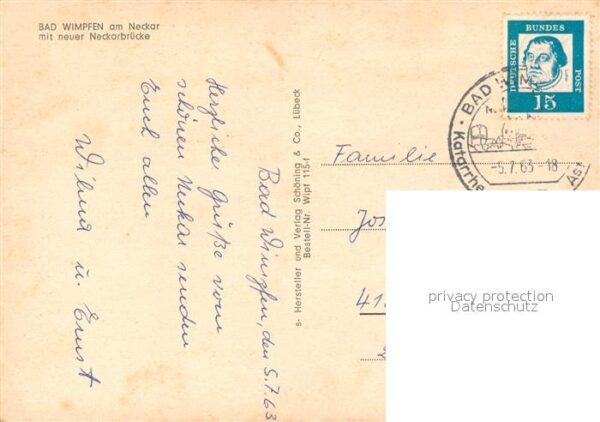 BAD WIMPFEN am Neckar
mit neuer Neckarbrücke
Bad Wimpfen, den 5.7.63
Herzliche Grüße vom
schönen Neckar senden
Euch allen
Wilma u. Ernst
s- Hersteller und Verlag Schöning & Co., Lübeck
Bestell-Nr. Wipf 115-f
DEUTSCHE BUNDES POST
15
BAD
-5.7.63-18
Katarrhe
Familie
Jos
41
privacy protection
Datenschutz